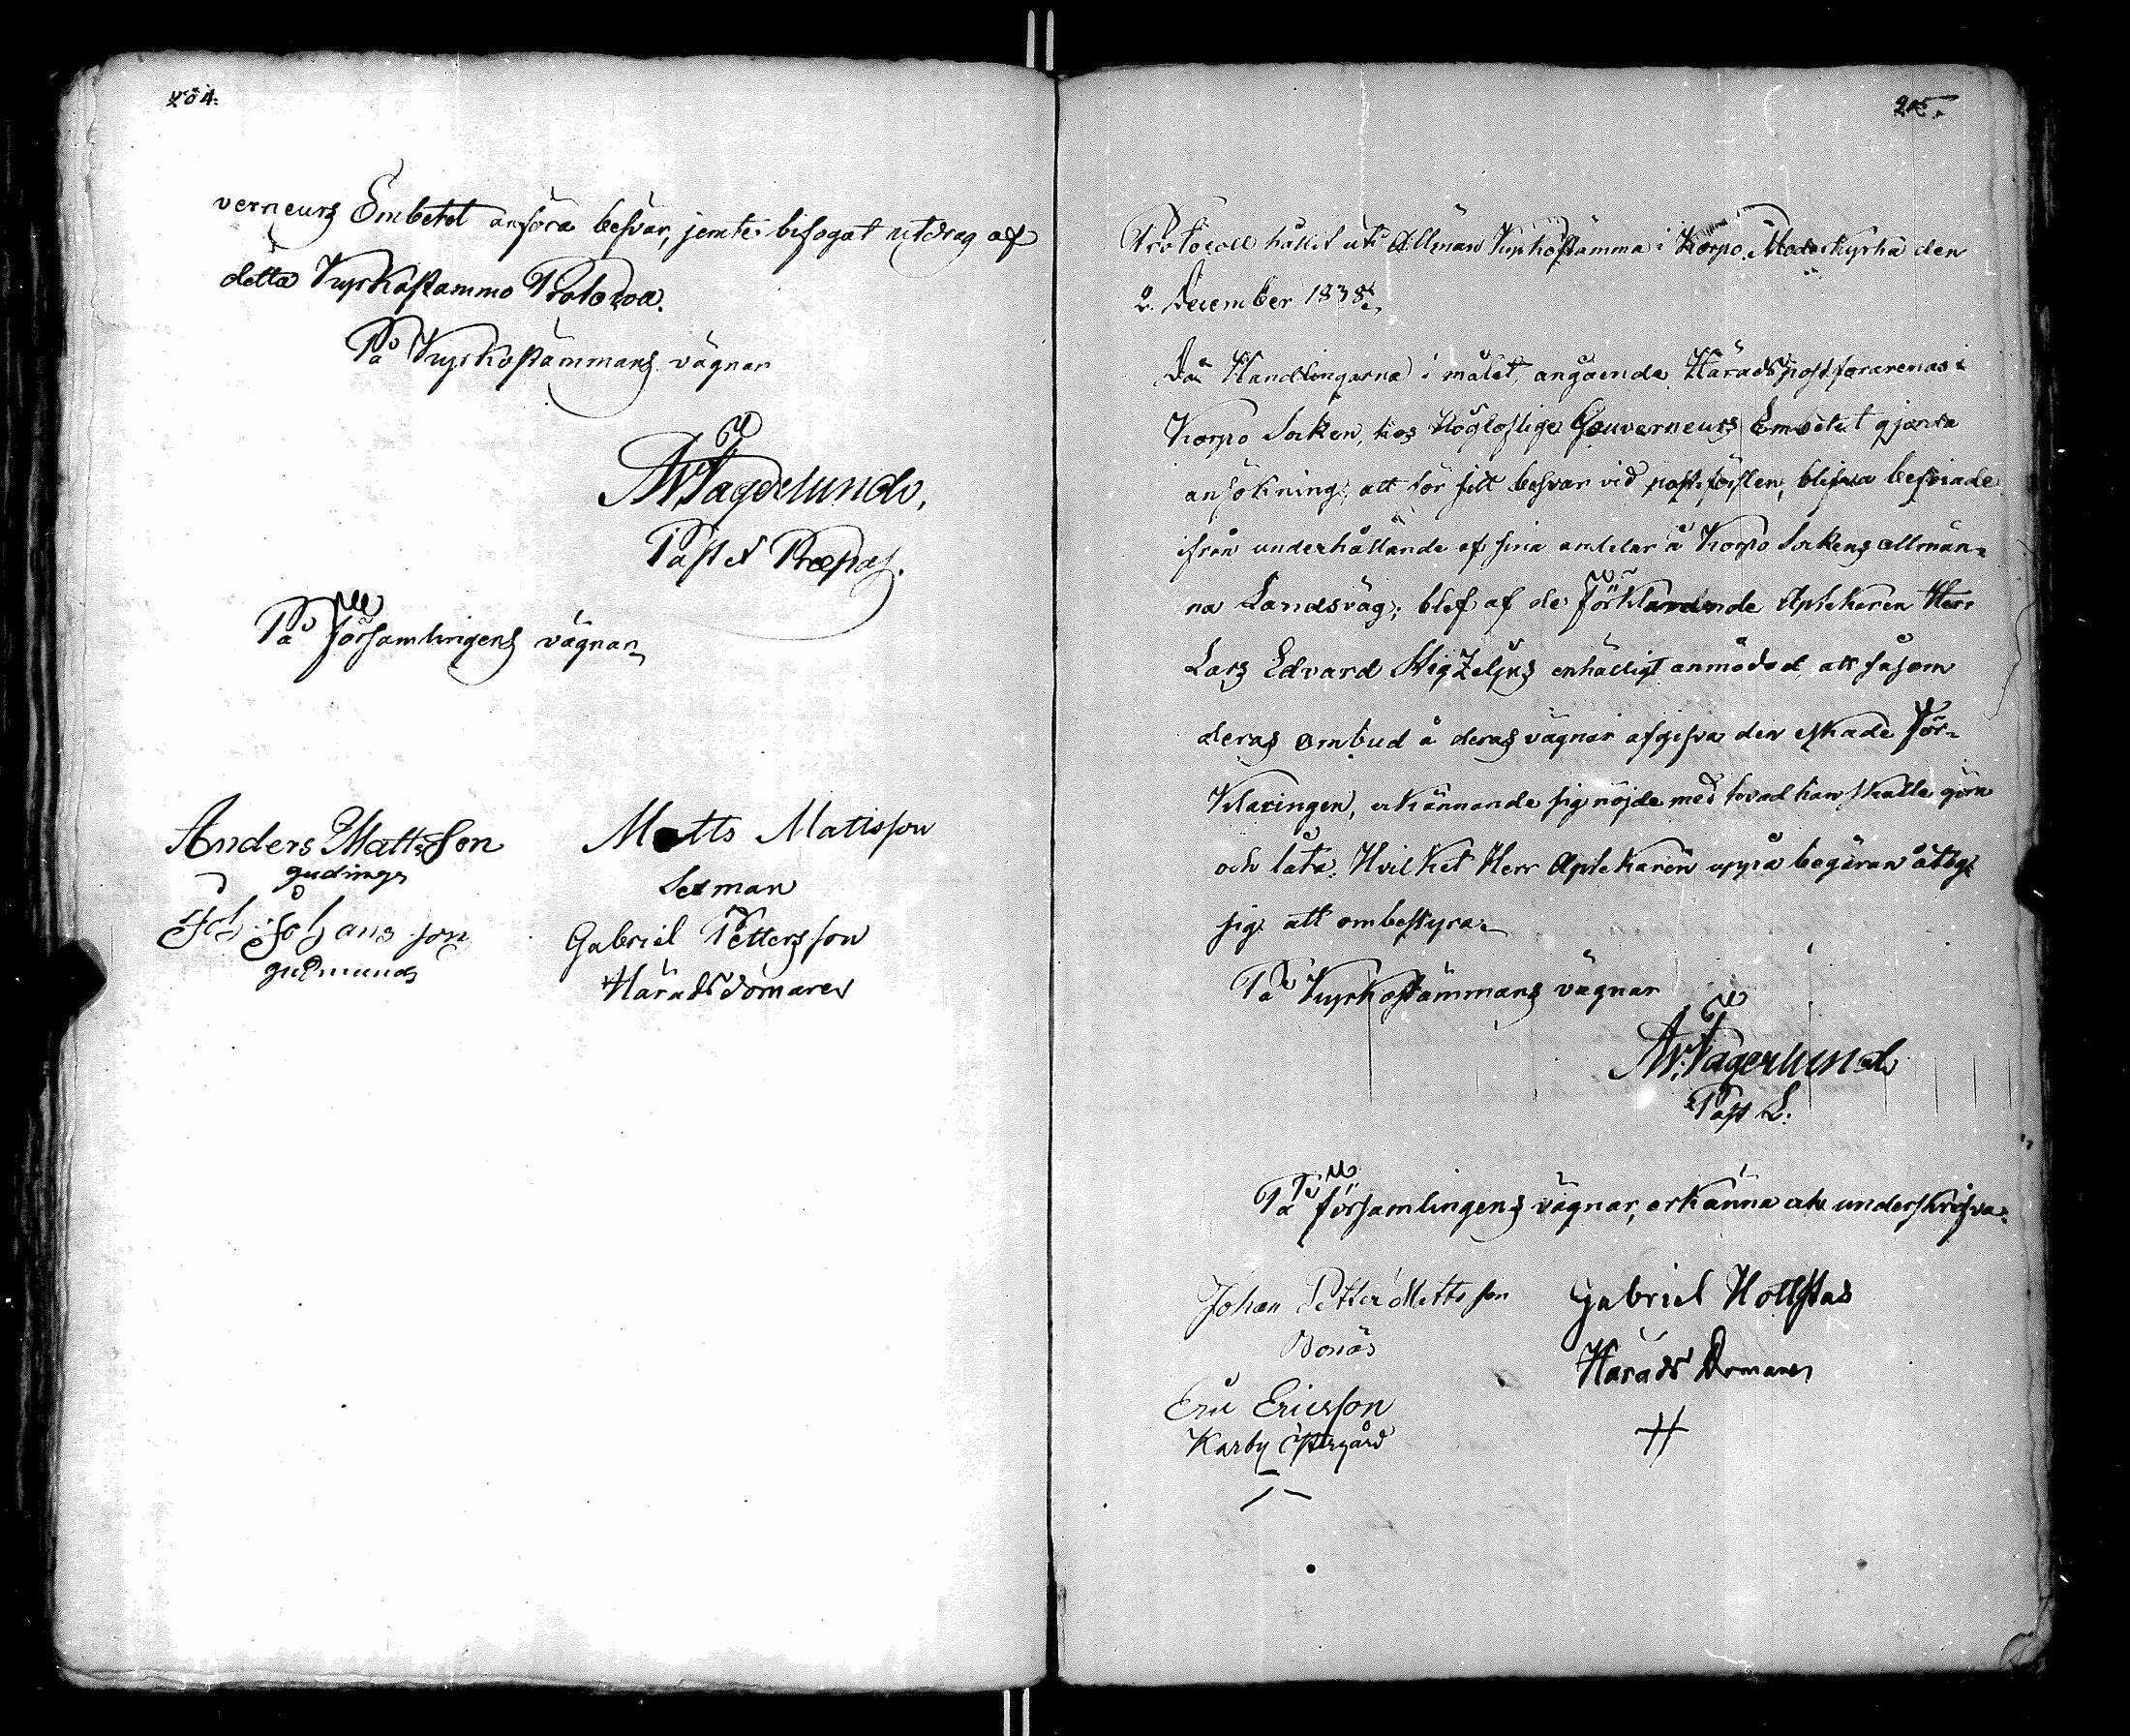 204.
verneurs Embetet anföra besvär, jemte bifogat utdrag af
detta Kyrkostämmo Protocoll.
På Kyrkostämmans vägnar
AW Fagerlund,
Past et Præpos.
På Församlingens vägnar
Anders Mattsson
gudings
Matts Mattsson
Sexman
Joh. Johansson
gudmunds
Gabriel Pettersson
Häradsdomare
205.
Protocoll hållit uti Allmän Kyrkostämma i Korpo Moderkyrka den
2. December 1838.
Då Handlingarna i målet, angående Häradspostförarenas i
Korpo Socken, hos Högloflige Gouverneurs Embetet gjorda
ansökning, att för sitt besvär vid postförslen, blifva befriade
ifrån underhållande af sina andelar å Korpo Sockens allmän-
na Landsväg; blef af de Förklarande Apthekaren Herr
Lars Edvard Higzelius enhälligt anmodad, att såsom
deras ombud å deras vägnar afgifva den äskade För-
klaringen, erkännande sig nöjde med hvad han skulle göra
och låta. Hvilket Herr Apthekaren uppå begäran åtog
sig att ombestyra.
På Kyrkostämmans vägnar
AW. Fagerlund
Past L.
På Församlingens vägnar, erkänna och underskrifva.
Johan Petter Mattsson
Bonäs
Gabriel Hollstas
Härads Domare
Eric Ericsson
Karby Östergård